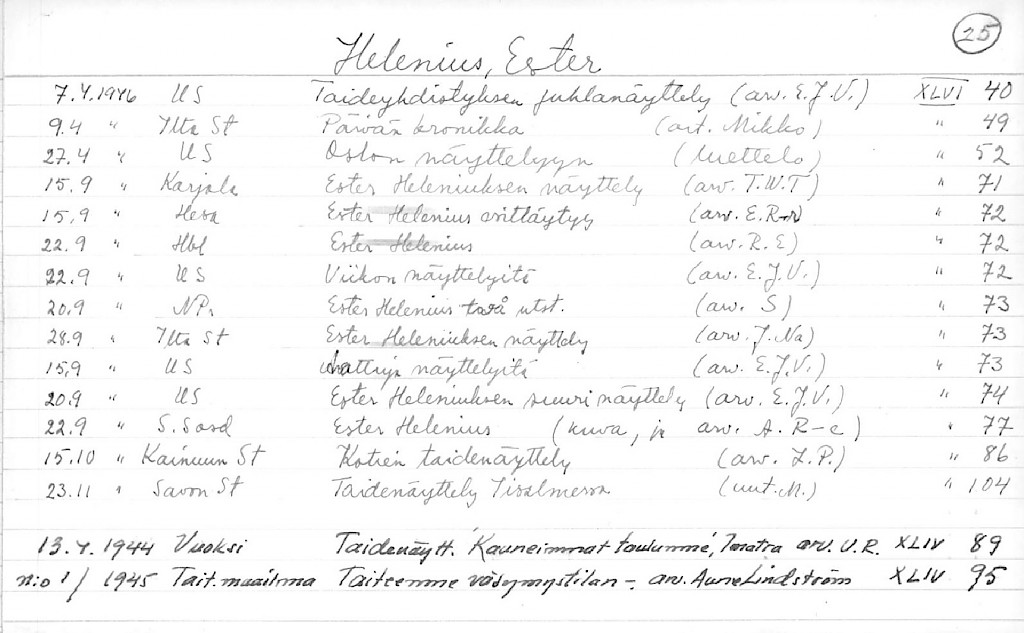 25
Helenius, Ester
7.4.1946 US Taideyhdistyksen juhlanäyttely (arv. E.J.V.) XLVI 40
9.4 " Ilta St Päivän kronikka (art. Mikko) " 49
27.4 " US Oslon näyttelyyn (luettelo) " 52
15.9 " Karjala Ester Heleniuksen näyttely (arv. T.W.T) " 71
15.9 " Hesa Ester Helenius erittäytyy (arv. E.R-r) " 72
22.9 " Hbl Ester Helenius (arv. R.E) " 72
22.9 " US Viikon näyttelyitä (arv. E.J.V.) " 72
20.9 " NPr Ester Helenius utst. (arv. S) " 73
28.9 " Ilta St Ester Heleniuksen näyttely (arv. J. Na) " 73
15.9 " US näyttelyitä (arv. E.J.V.) " 73
20.9 " US Ester Heleniuksen suuri näyttely (arv. E.J.V.) " 74
22.9 " S. Sosd Ester Helenius (kuva, ja arv. A. R-e) " 77
15.10 " Kainuun St Kotien taidenäyttely (arv. L.P.) " 86
23.11 " Savon St Taidenäyttely Iisalmessa (uut. M.) " 104
13.4.1944 Vuoksi Taidenäytt. 'Kauneimmat taulumme', Imatra arv. V.R. XLIV 89
n:o 1/1945 Tait. maailma Taiteemme väsymystilan - arv. Aune Lindström XLIV 95